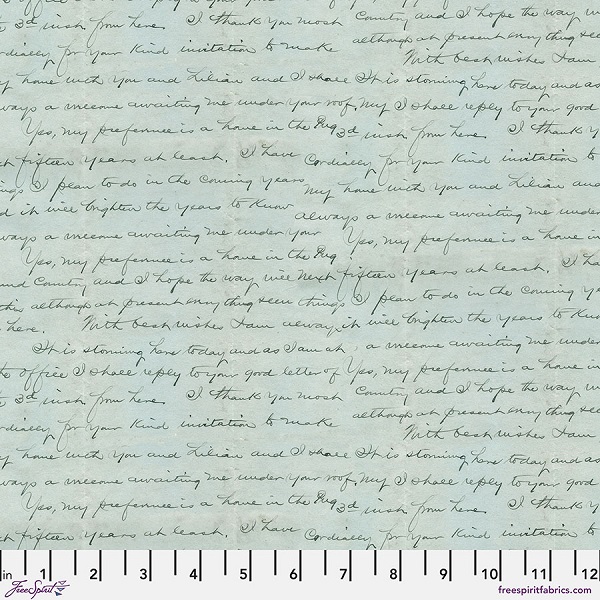 3d inst. from here. I thank you most
Country and I hope the way w
cordially for your kind invitation to make
although at present
With best wishes I am
my home with you and Lilian and I shall
It is storming here today and as
always a welcome awaiting me under your roof. My
I shall reply to your good
Yes, my preference is a home in the
3d inst. from here. I thank y
next fifteen years at least. I have
Cordially for your kind invitation to
things I plan to do in the coming years
my home with you and Lilian and
d it will brighten the years to know
always a welcome awaiting me under
always a welcome awaiting me under your
Yes, my preference is a home in
Yes, my preference is a home in the
and Country and I hope the way will
next fifteen years at least. I ha
this although at present
things I plan to do in the coming ye
here. With best wishes I am always
it will brighten the years to know
It is storming here today and as I am at
a welcome awaiting me under
the office I shall reply to your good letter of
Yes, my preference is a home in
3d inst. from here. I thank you most
Country and I hope the way w
cordially for your kind invitation to make
although at present
With best wishes I am
my home with you and Lilian and I shall
It is storming here today and as
always a welcome awaiting me under your roof. My
I shall reply to your good
Yes, my preference is a home in the
3d inst. from here. I thank y
next fifteen years at least. I have
Cordially for your kind invitation to
in 1 2 3 4 5 6 7 8 9 10 11 12
FreeSpirit
freespiritfabrics.com